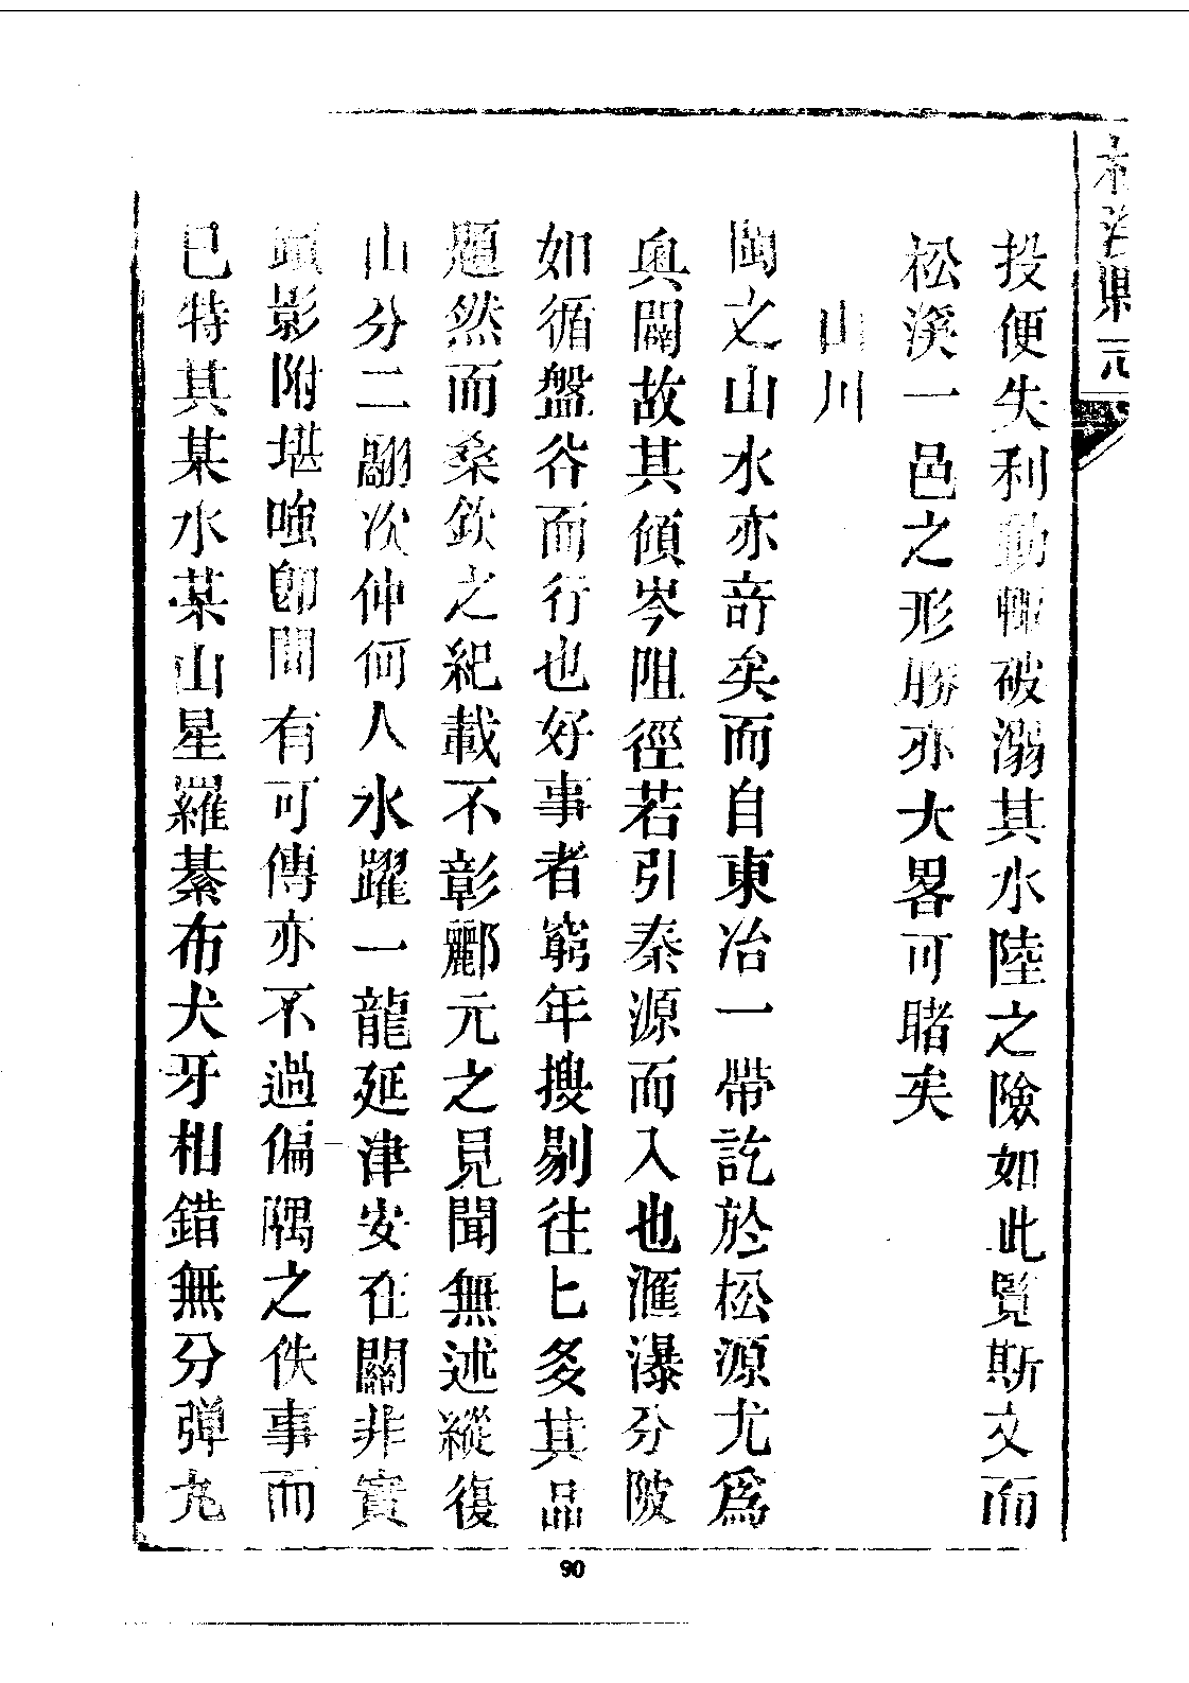 松溪縣志
投便失利動輒破溺其水陸之險如此覽斯文而
松溪一邑之形勝亦大畧可睹矣
山川
閩之山水亦奇矣而自東冶一帶訖於松源尤爲
奥闢故其傾岑阻徑若引秦源而入也滙瀑分陂
如循盤谷而行也好事者窮年搜剔往匕多其品
題然而桑欽之紀載不彰酈元之見聞無述縱復
山分二翮次仲何人水躍一龍延津安在關非實
蹟影附堪嗤卽間有可傳亦不過偏隅之佚事而
已特其某水某山星羅綦布犬牙相錯無分弹丸
90